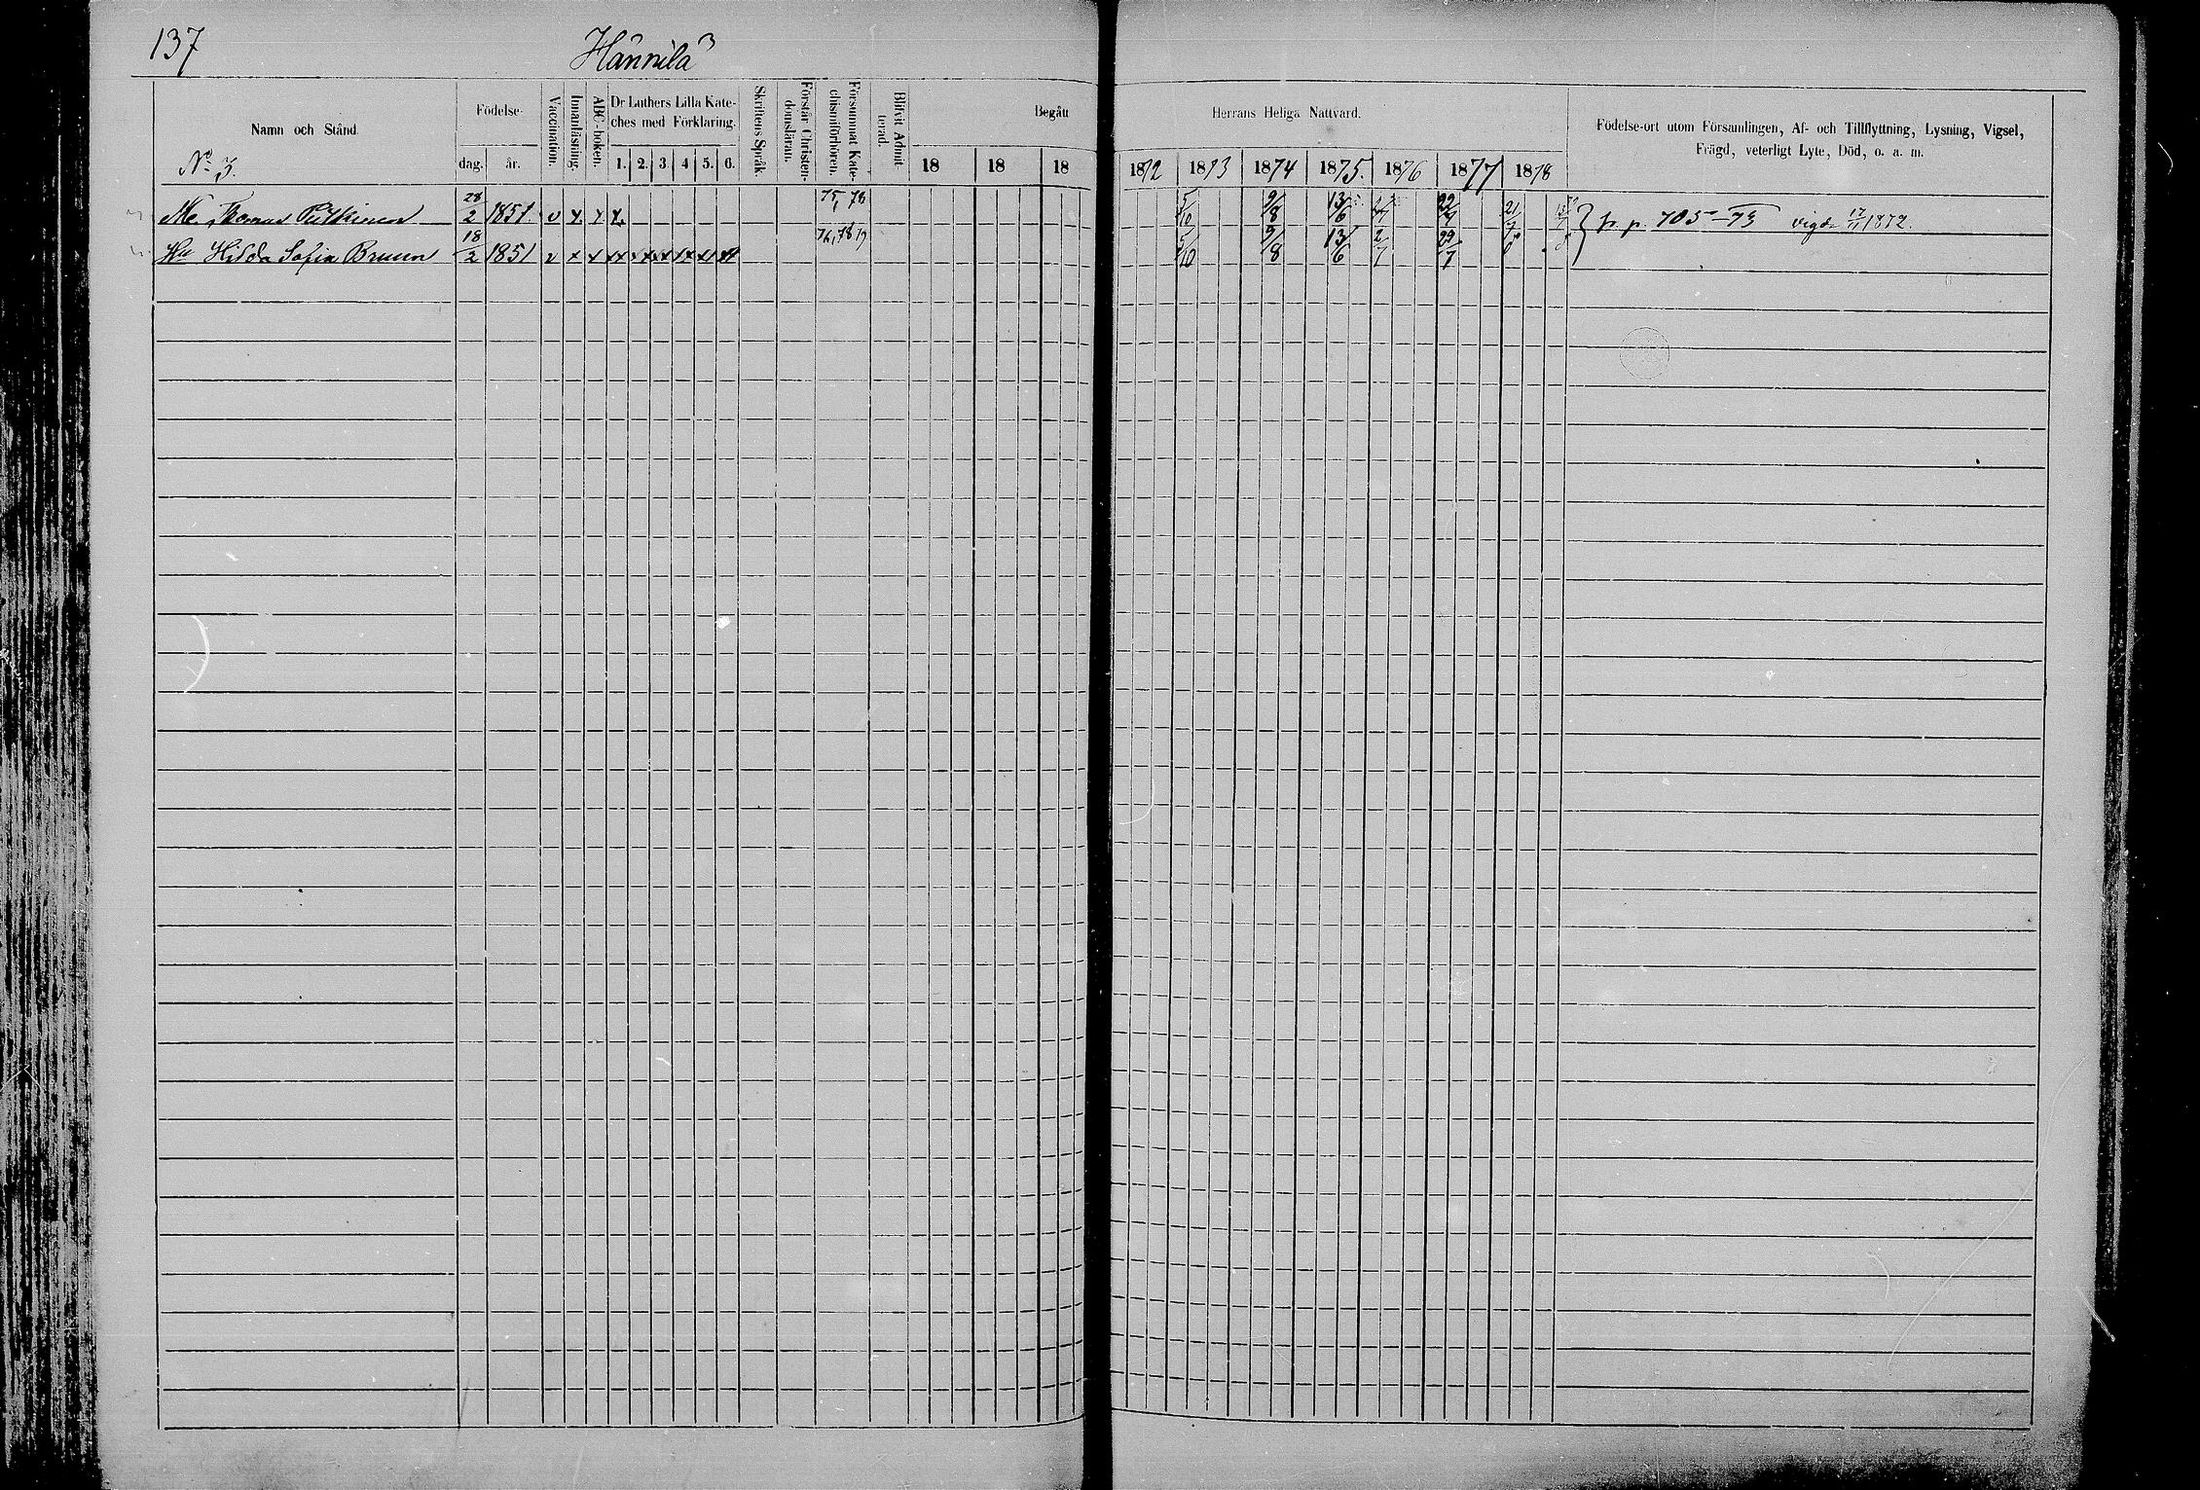 137
Hännilä
Namn och Stånd.
Födelse-
dag. år.
Vaccination.
Innanläsning.
ABC-boken.
Dr Luthers Lilla Kate-
ches med Förklaring.
1. 2. 3. 4. 5. 6.
Skriftens Språk.
Förstår Christen-
domsläran.
Försummat Kate-
chismiförhören.
Blifvit Admit-
terad.
Begått
18 18 18
Herrans Heliga Nattvard.
1872 1873 1874 1875. 1876 1877 1878
Födelse-ort utom Församlingen, Af- och Tillflyttning, Lysning, Vigsel,
Frägd, veterligt Lyte, Död, o. a. m.
No 3.
Thomas 28/2 1851 v x x x 75, 78 5/10 9/8 13/6 2/7 22/7 p. p. 705–73 vigde 17/11 1872.
Hu Hilda Sofia Bruun 18/2 1851 v x x 76, 78 79 5/10 9/8 13/6 2/7 22/7